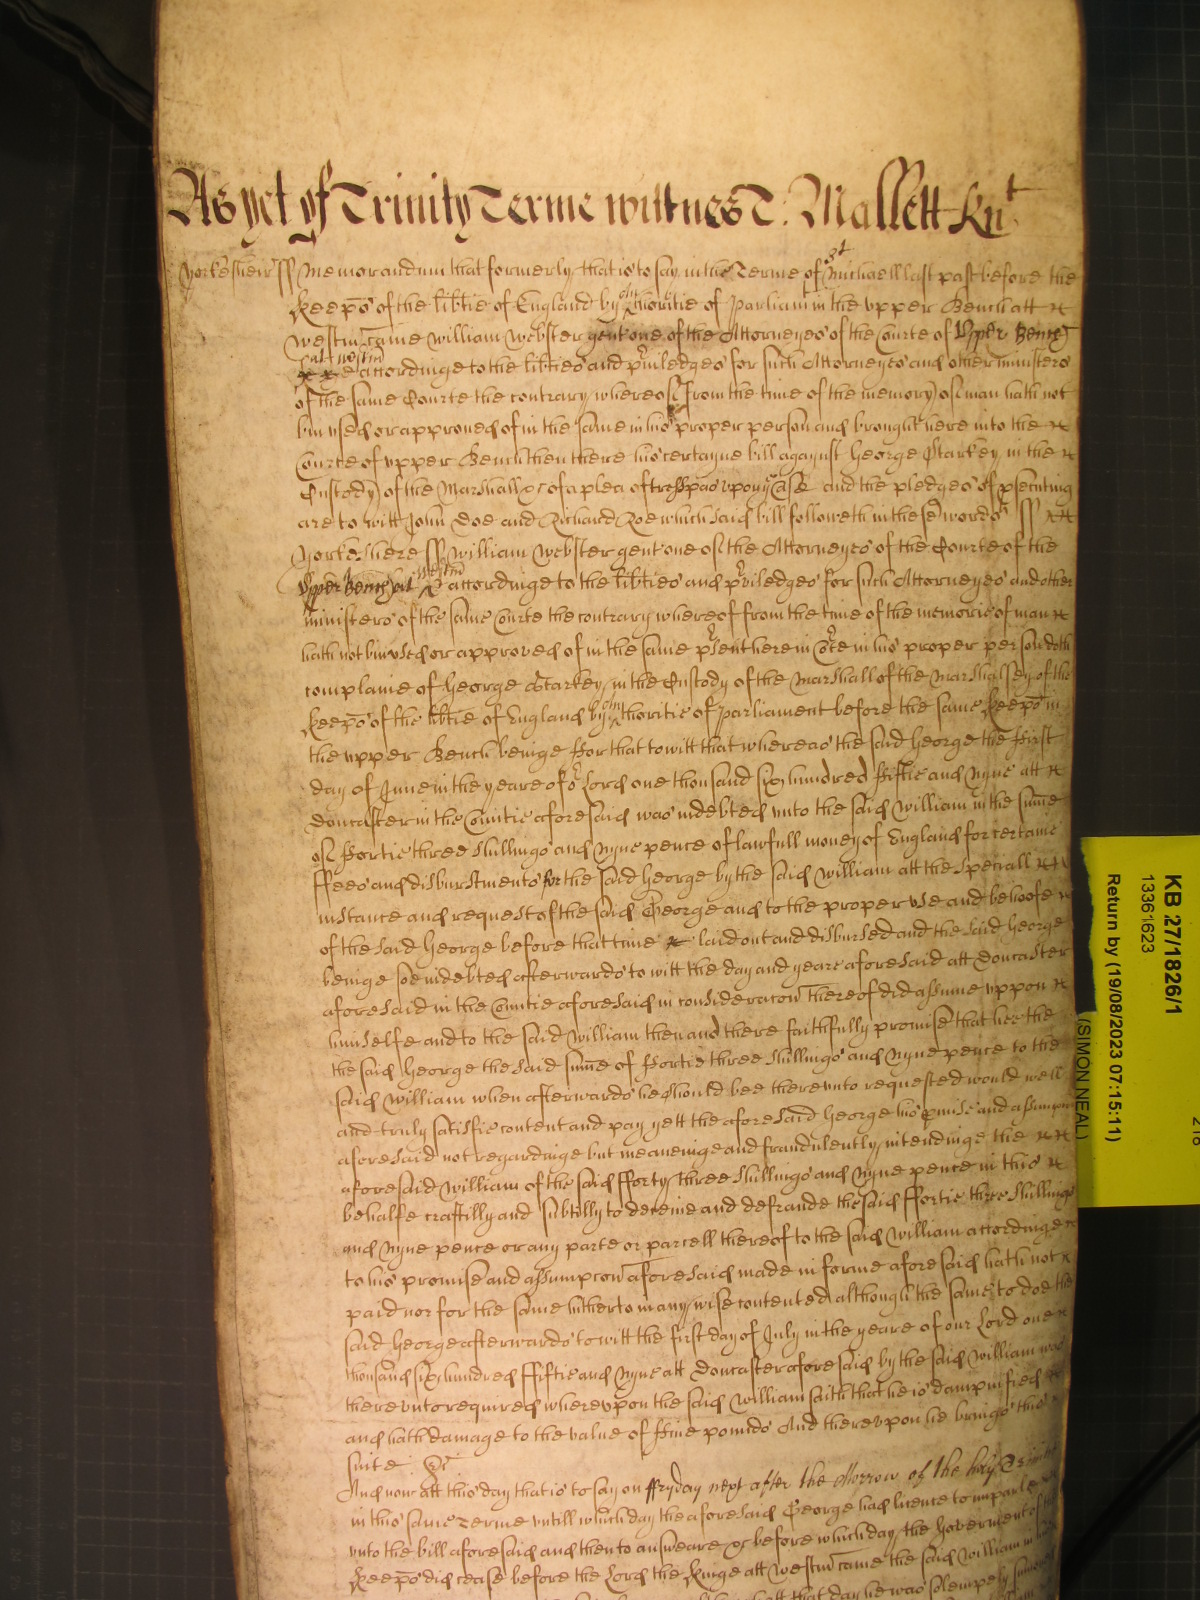 As yet of Trinity Terme wittnes T: Mallett Knt
Yorkesheir ss Memorandum that formerly that is to say in the Terme of St Michaell last past before the
Keeps of the libtie of England by authoritie of Parliamt in the upper Bench att
Westm came William Webster gent one of the Attorneyes of the Courte of Upper Bench
att Westm accordinge to the libties and priviledges for such Attorneyes and other ministers
of the same Courte the contrary whereof from the time of the memory of man hath not
bin used or approved of in the same in his proper person and brought here into the
Courte of upper Bench then there his certayne bill against George Starkey in the
Custody of the Marshall &c of a plea of tresspas upon ye Case and the pledges of psecuting
are to witt John Doe and Richard Roe which said bill followeth in these words ss
Yorkeshere ss William Webster gent one of the Attorneyes of the Courte of the
Upper Bench att Westm accordinge to the libties and priviledges for such Attorneyes and other
ministers of the same Courte the contrary whereof from the time of the memorie of man
hath not bin used or approved of in the same psent here in Corte in his proper person doth
complaine of George Starkey in the Custody of the Marshall of the Marshalsey of the
Keeps of the libtie of England by authoritie of parliament before the same Keeps in
the upper Bench beinge ffor that to witt that whereas the said George the ffirst
day of June in the yeare of or Lord one thousand six hundred ffiftie and Nyne att
Doncaster in the Countie aforesaid was indebted unto the said William in the sume
of ffortie three shillings and Nyne pence of lawfull money of England for certaine
ffees and disburstments for the said George by the said William att the speciall
instance and request of the said George and to the proper use and behoofe
of the said George before that time laid out and disbursed and the said George
beinge soe indebted afterwards to witt the day and yeare aforesaid att Doncaster
aforesaid in the Countie aforesaid in consideracon thereof did assume uppon
himselfe and to the said William then and there faithfully promise that hee the
the said George the said sume of ffortie three shillings and Nyne pence to the
said William when afterwards he should bee thereunto requested would well
and truly satisfie content and pay yett the aforesaid George his pmise and assumpcon
aforesaid not regardinge but meaneinge and fraudulently intendinge the
aforesaid William of the said fforty three shillings and Nyne pence in this
behalfe craftilly and subtilly to deceive and defraude the said ffortie three shillings
and Nyne pence or any parte or parcell thereof to the said William accordinge
to his promise and assumpcon aforesaid made in forme aforesaid hath not
paid nor for the same hitherto in any wise contented although the same to doe the
said George afterwards to witt the first day of July in the yeare of our Lord one
thousand six hundred ffiftie and Nyne att Doncaster aforesaid by the said William was
thereunto required whereupon the said William saith that he is dampnified
and hath damage to the value of ffive pounds And thereupon he brings this
suite &c
And now att this day that is to say on ffryday next after the Morrow of the holy Trinitie
in this same Terme untill which day the aforesaid George had licence to imparle
unto the bill aforesaid and then to answeare &c before which day the Goverment of the
Keeps did cease before the Lord the Kinge att Westm came the said William in
that day he was solemply